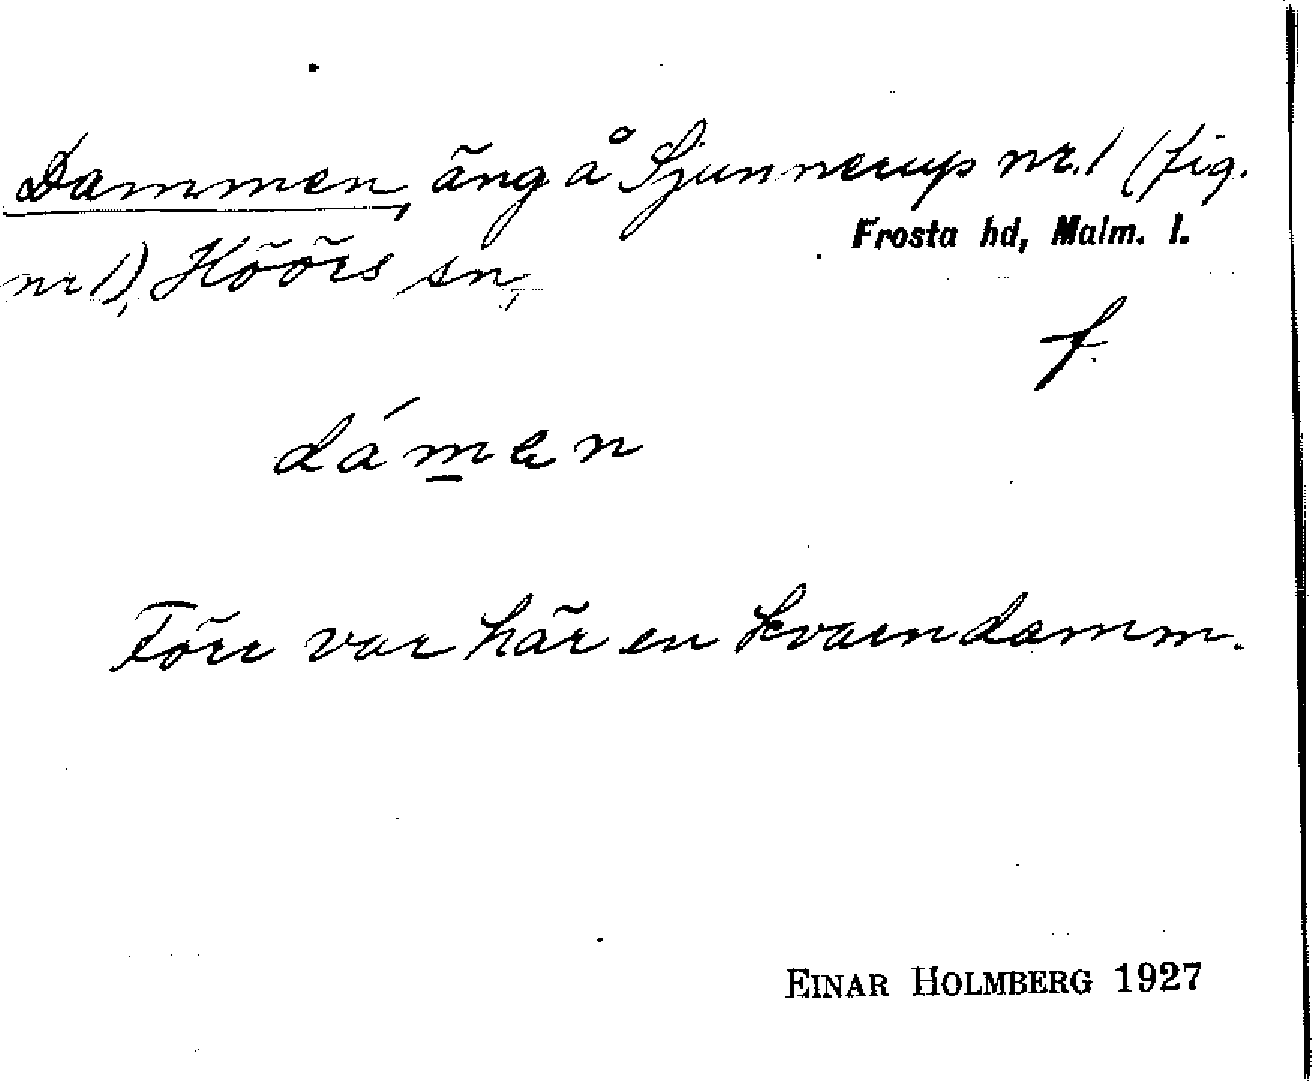 Dammen, äng å Sjunnerup nr.1 (fig.
Frosta hd, Malm. l.
nr 1), Höörs sn,
f.
dámen
Förr var här en kvarndamm.
EINAR HOLMBERG 1927